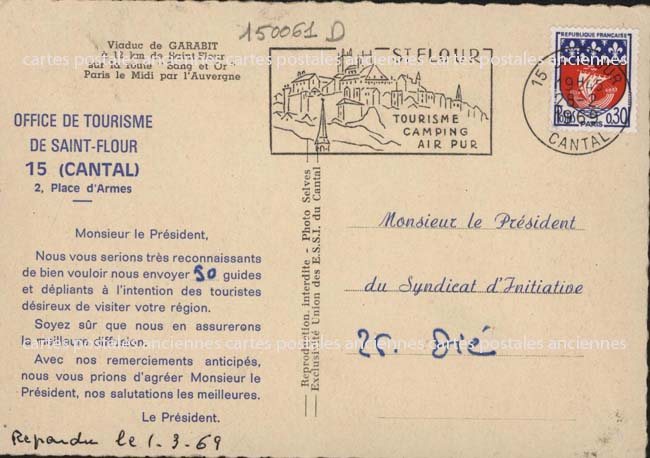 150061 D
Viaduc de GARABIT
À 12 km de Saint-Flour
sur la route "Sang et Or"
Paris le Midi par l'Auvergne
OFFICE DE TOURISME
DE SAINT-FLOUR
15 (CANTAL)
2, Place d'Armes
Monsieur le Président,
Nous vous serions très reconnaissants
de bien vouloir nous envoyer 50 guides
et dépliants à l'intention des touristes
désireux de visiter votre région.
Soyez sûr que nous en assurerons
la meilleure diffusion.
Avec nos remerciements anticipés,
nous vous prions d'agréer Monsieur le
Président, nos salutations les meilleures.
Le Président.
Repondu le 1-3-69
Reproduction interdite - Photo Selves
Exclusivité Union des E.S.S.I. du Cantal
ST FLOUR
TOURISME
CAMPING
AIR PUR
15 FLOUR
19H
28-2
1969
CANTAL
REPUBLIQUE FRANÇAISE
POSTES 0,30
PARIS
Monsieur le Président
du Syndicat d'Initiative
25. Dié
cartes postales anciennes cartes postales anciennes cartes postales anciennes